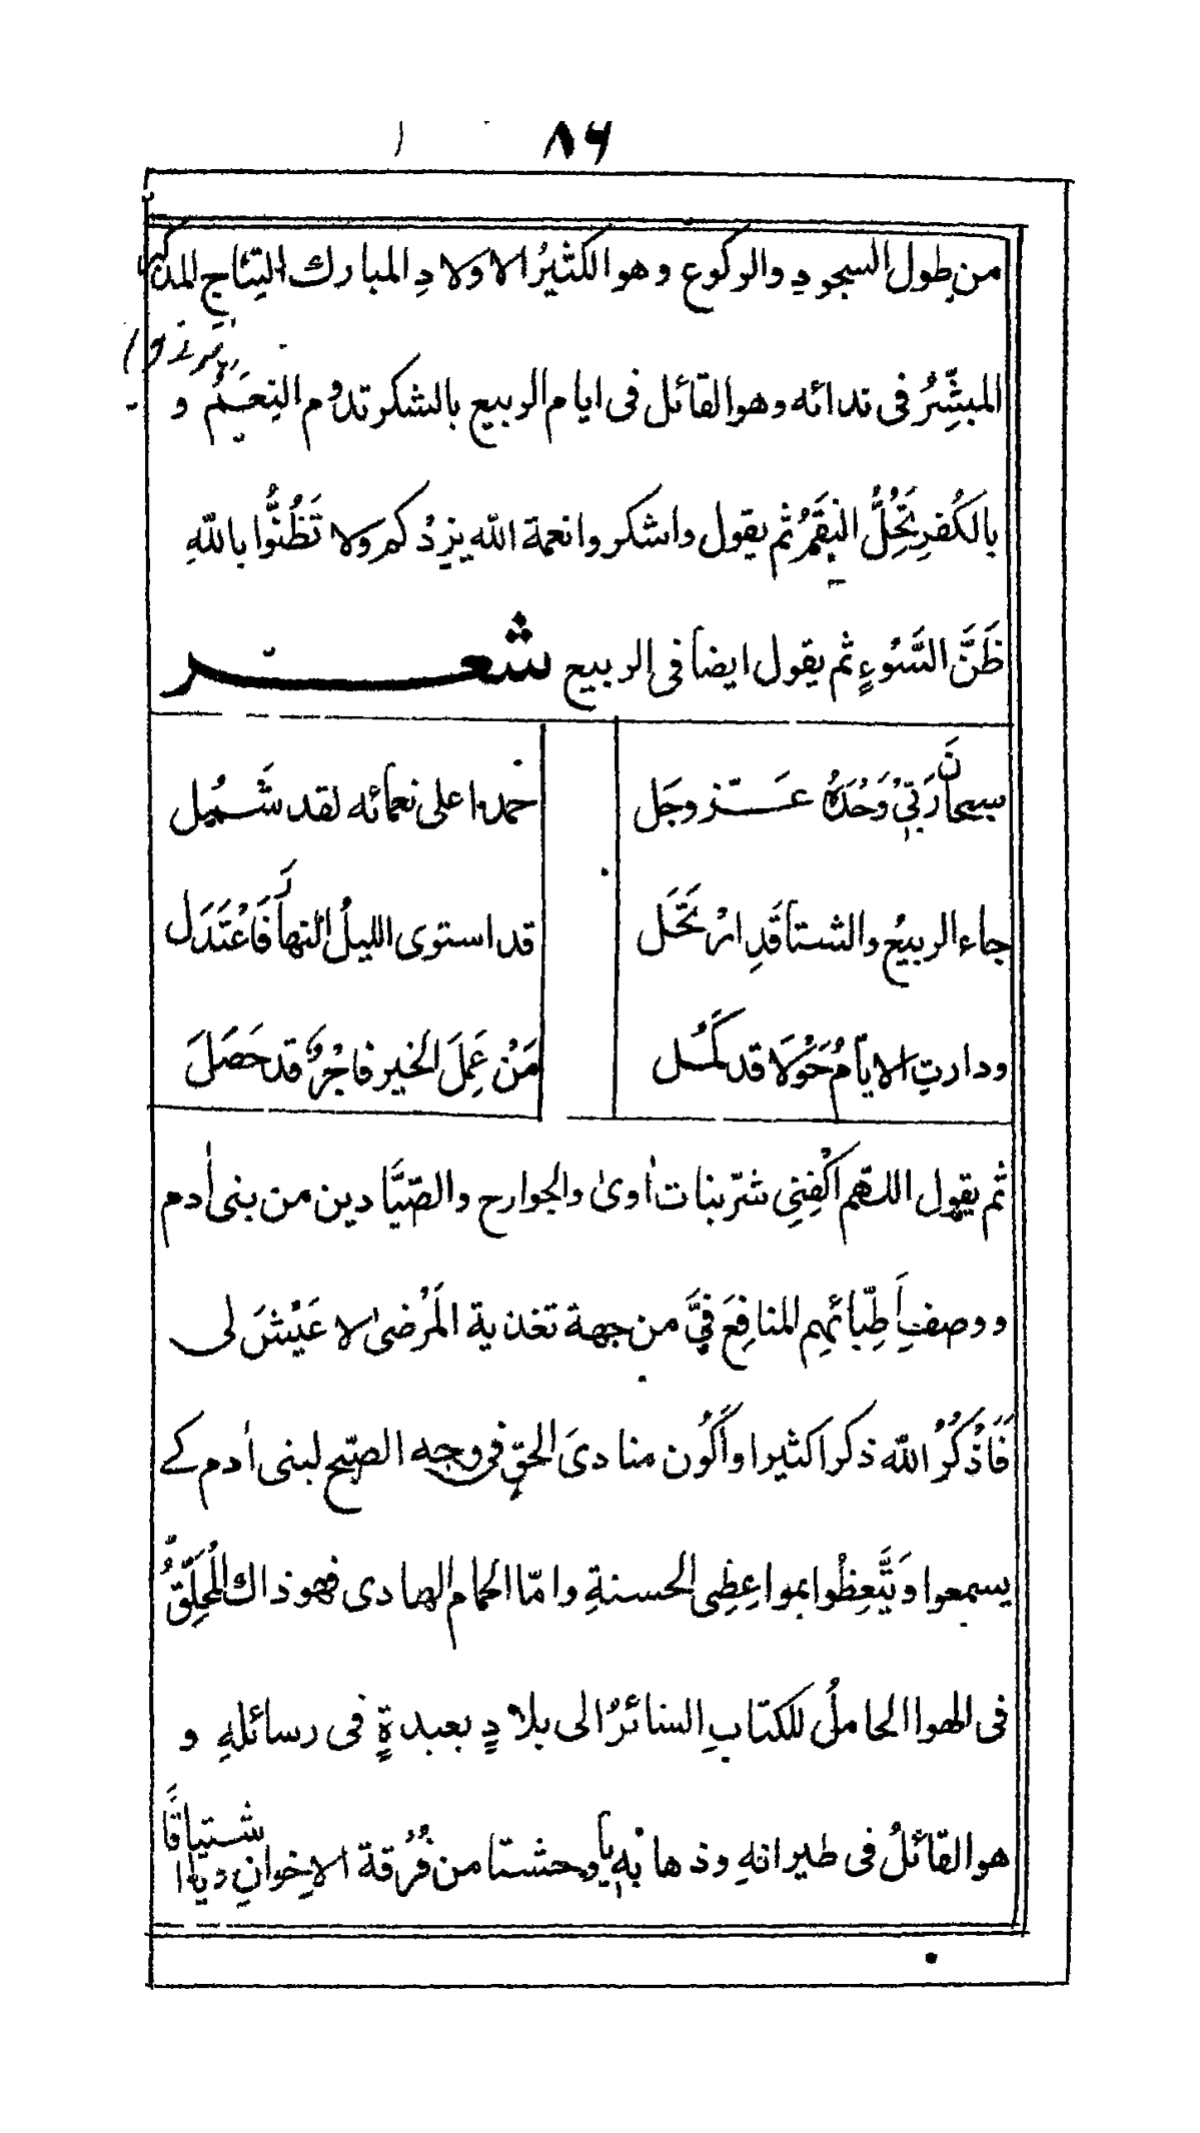 ٨٦
من طول السجودِ والركوع وهو الكثيرُ الاولادِ المبارك النِتاج المذكر
المبشِّرُ فى ندائه وهو القائل فى ايام الربيع بالشكر تدوم النِعَمُ و
بالكُفرِ تَحُلُّ النِقَمُ ثم يقول واشكروا نعمة الله يزِدْكم ولا تَظُنُّوا باللهِ
ظَنَّ السَّوُءِ ثم يقول ايضا فى الربيع شعر
سبحانَ رَبّىْ وَحْدَهُ عَزّ وجَل حمدا على نعمائه لقد شَمُل
جاء الربيعُ والشتا قَدِ ارْتَحَل قد استوى الليلُ النهارَ فَاعْتَدَل
ودارتِ الايامُ حَوْلا قد كَمُل مَنْ عَمِلَ الخير فاجْرُهُ قد حَصَلَ
ثم يقول اللهم اكْفِنِى شرّ بنات أوىٰ والجوارح والصّيَّادين من بنى أدم
ووصفِ أَطِبّائهِم المنافِعَ فِىَّ من جهة تغذية المَرْضىٰ لا عَيْشَ لى
فَاَذْكُرُ الله ذكرا كثيرا واَكُون منادىَ الحقِ فى وجه الصبح لبنى أدم كے
يسمعوا ويَتَّعِظُوا بمواعِظِى الحسنةِ وامّا الحمام الهادى فهو ذاك المُحَلِّقُ
فى الهوا الحاملُ للكتابِ السائرُ الى بلادٍ بعيدةٍ فى رسائلهِ و
هو القائلُ فى طيرانهِ وذهابهِ يا وحشتا من فُرْقة الاخوانِ ويا اشتياقًا